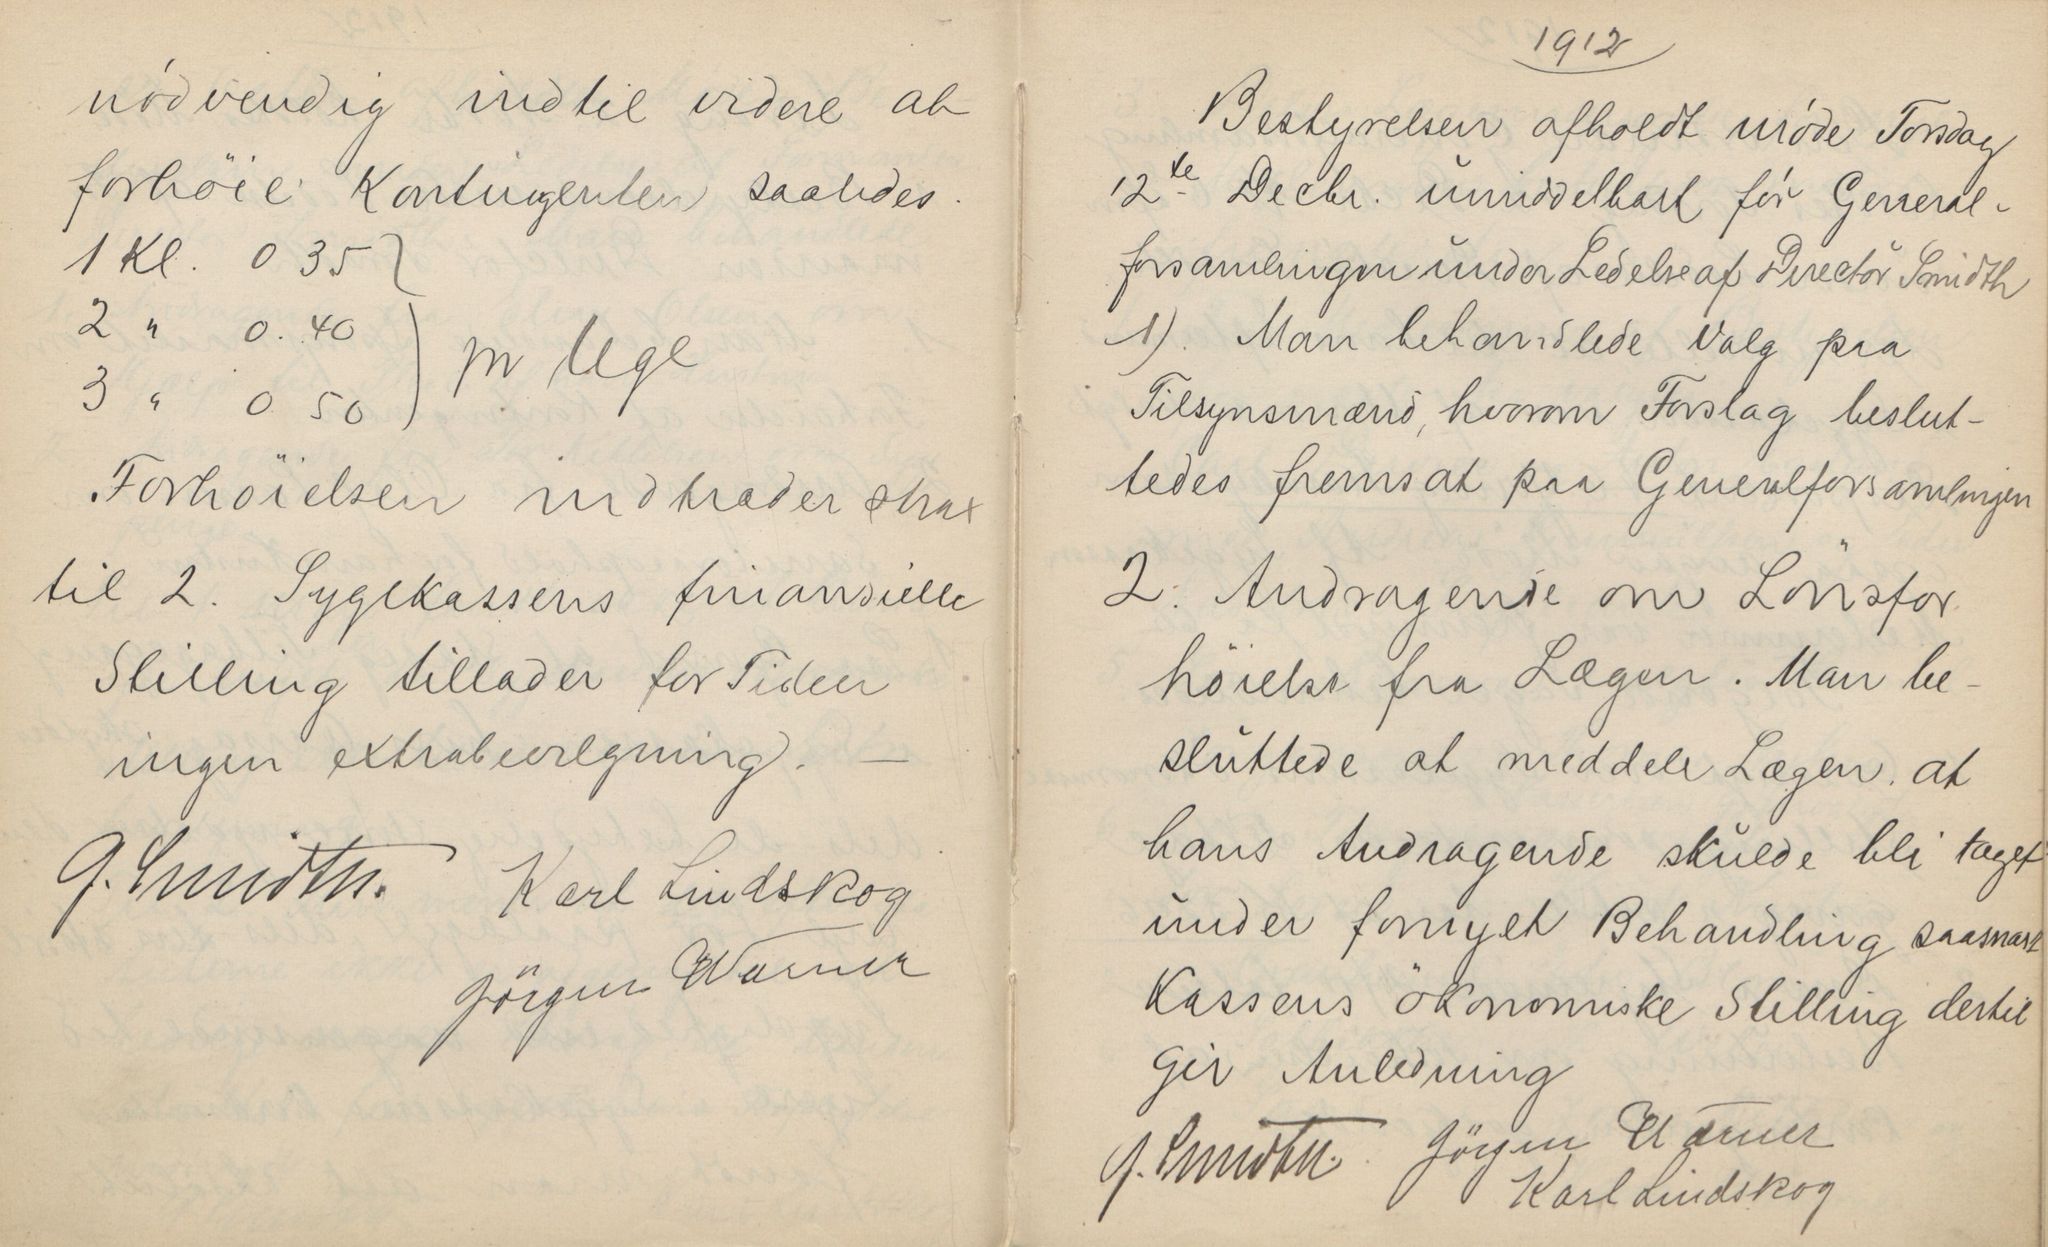 nödvendig indtil videre at
forhöie Kontingenten saaledes.
1 Kl. 0 35
2 " 0.40
3 " 0 50
pr Uge
Forhöielsen indtræder strax
til 2. Sygekassens finansielle
Stilling tillader for Tiden
ingen extrabevilgning. —
G. Smidth. Karl Lindskog
Jörgen Warner
1912
Bestyrelsen afholdt möde Torsdag
12te Decbr. umiddelbart för General-
forsamlingen under Ledelse af Director Smidth
1). Man behandlede Valg paa
Tilsynsmænd, hvorom Forslag beslut-
tedes fremsat paa Generalforsamlingen
2. Andragende om Lönsfor
höielse fra Lægen. Man be-
sluttede at meddele Lægen. at
hans Andragende skulde bli taget
under fornyet Behandling saasnart
Kassens ökonomiske Stilling dertil
gir Anledning
G. Smidth. Jörgen Warner
Karl Lindskog